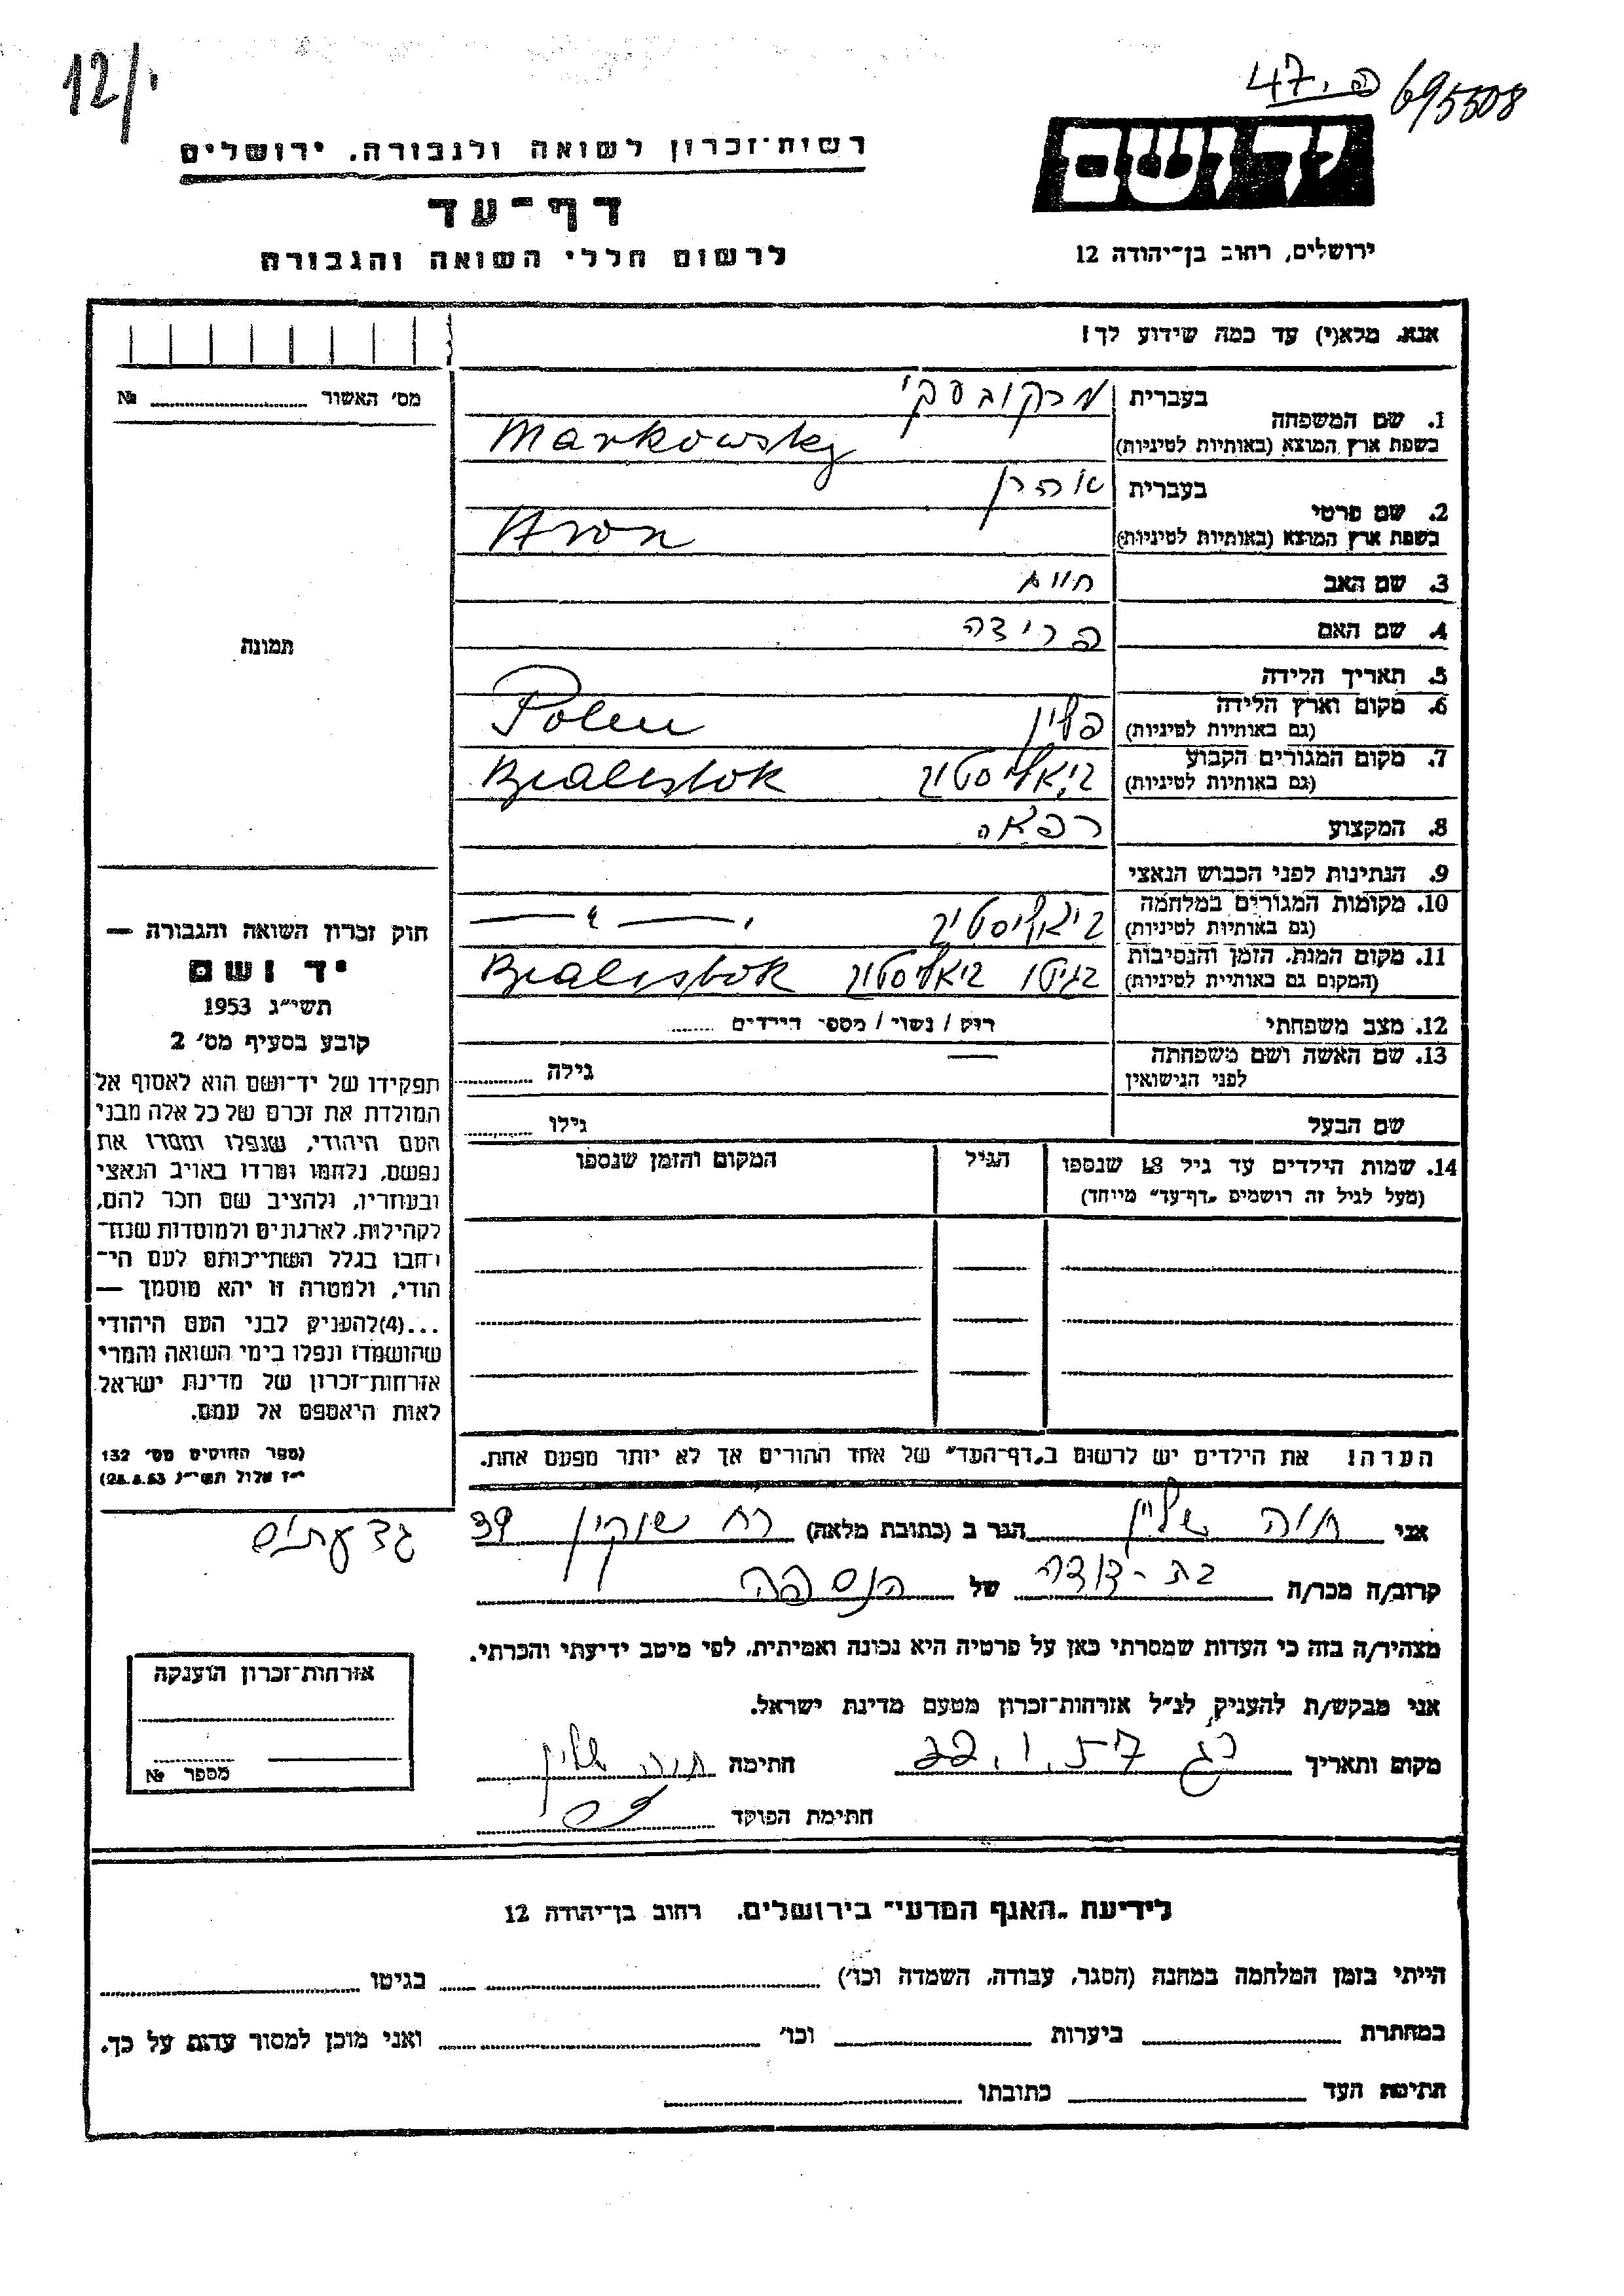 12/י
47.פ 695508
יד ושם
רשות־זכרון לשואה ולגבורה. ירושלים
דף־עד
לרשום חללי השואה והגבורה
ירושלים, רחוב בן־יהודה 12
אנא, מלא(י) עד כמה שידוע לך!
מס' האשור № 
1. שם המשפחה בעברית מרקובסקי
בשפת ארץ המוצא (באותיות לטיניות) Markowsky
2. שם פרטי בעברית אהרן
בשפת ארץ המוצא (באותיות לטיניות) Aron
3. שם האב חיים
4. שם האם פרידה
תמונה
5. תאריך הלידה
6. מקום וארץ הלידה פולין Polen
(גם באותיות לטיניות)
7. מקום המגורים הקבוע ביאליסטוק Bialistok
(גם באותיות לטיניות)
8. המקצוע
9. הנתינות לפני הכבוש הנאצי
10. מקומות המגורים במלחמה ביאליסטוק
(גם באותיות לטיניות)
11. מקום המות, הזמן והנסיבות בגיטו ביאליסטוק Bialistok
(המקום גם באותיות לטיניות)
12. מצב משפחתי רווק / נשוי / מספר הילדים
13. שם האשה ושם משפחתה — גילה
לפני הנישואין
שם הבעל גילו
14. שמות הילדים עד גיל 18 שנספו הגיל המקום והזמן שנספו
(מעל לגיל זה רושמים „דף־עד" מיוחד)
חוק זכרון השואה והגבורה —
יד ושם
תשי"ג 1953
קובע בסעיף מס' 2
תפקידו של יד־ושם הוא לאסוף אל
המולדת את זכרם של כל אלה מבני
העם היהודי, שנפלו ומסרו את
נפשם, נלחמו ומרדו באויב הנאצי
ובעוזריו, ולהציב שם וזכר להם,
לקהילות, לארגונים ולמוסדות שנח־
רבו בגלל השתייכותם לעם הי־
הודי, ולמטרה זו יהא מוסמך —
...(4)להעניק לבני העם היהודי
שהושמדו ונפלו בימי השואה והמרי
אזרחות־זכרון של מדינת ישראל
לאות היאספם אל עמם.
(ספר החוקים מס' 132
י"ז אלול תשי"ג 28.8.53)
הערה! את הילדים יש לרשום ב„דף־העד" של אחד ההורים אך לא יותר מפעם אחת.
אני חוה שליין הגר ב (כתובת מלאה) רח שוקין 39 גבעתיים
קרוב/ה מכר/ה בת־דודה של הנספה
מצהיר/ה בזה כי העדות שמסרתי כאן על פרטיה היא נכונה ואמיתית, לפי מיטב ידיעתי והכרתי.
אני מבקש/ת להעניק לנ"ל אזרחות־זכרון מטעם מדינת ישראל.
מקום ותאריך חתימה חוה שליין
חתימת הפוקד
אזרחות־זכרון הוענקה
מספר №
לידיעת „האגף המדעי" בירושלים, רחוב בן־יהודה 12
הייתי בזמן המלחמה במחנה (הסגר, עבודה, השמדה וכו') בגיטו
במחתרת ביערות וכו' ואני מוכן למסור עדות על כך.
חתימת העד כתובתו